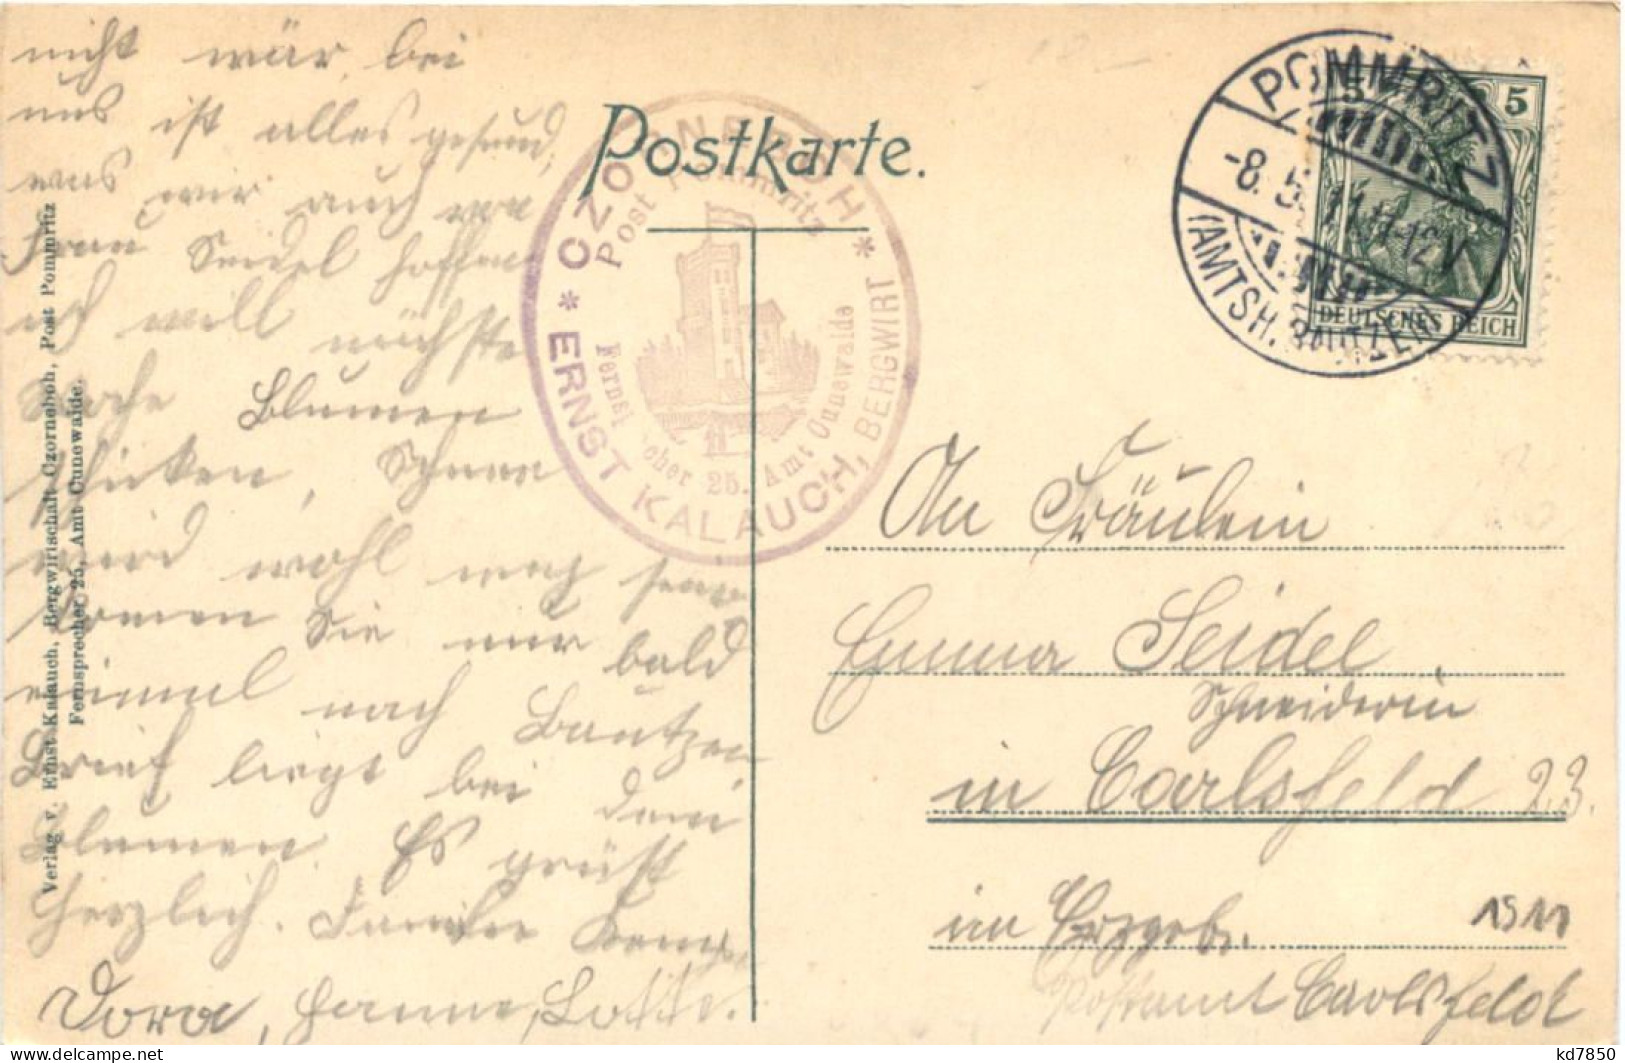 nicht wär, bei
uns ist alles gesund,
was wir auch von
Frau Seidel hoffen
ich will nächste
Woche Blumen
schicken, Ihnen
wird wohl noch
kommen Sie nur bald
einmal nach Bautzen
Brief liegt bei den
Blumen. Es grüßt
herzlich. Familie
Dora, Hanne, Lotte.
Verlag v. Ernst Kalauch, Bergwirtschaft Czorneboh, Post Pommritz
Fernsprecher 25, Amt Cunewalde.
Postkarte.
* CZORNEBOH *
Post Pommritz
Fernsprecher 25. Amt Cunewalde
ERNST KALAUCH, BERGWIRT
POMMRITZ
-8.5.11.11-12V
(AMTSH. BAUTZEN)
5 5
DEUTSCHES REICH
An Fräulein
Emma Seidel,
Schneiderin
in Carlsfeld 23.
im Erzgeb.
1911
Postamt Carlsfeld
kd7850